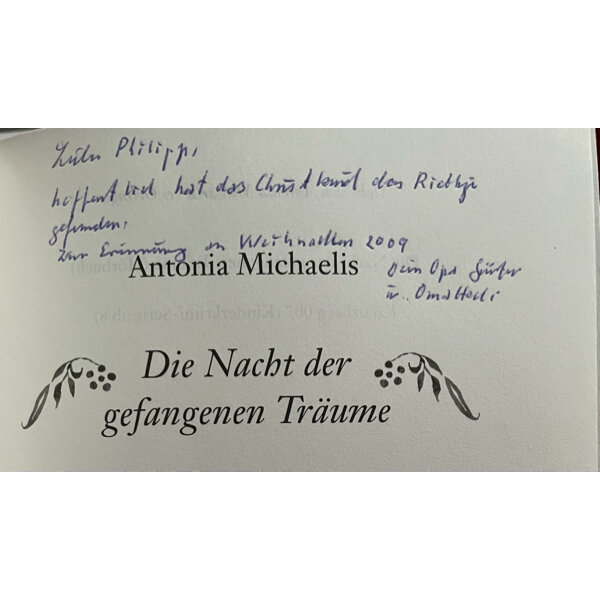 Lieber Philipp,
hoffentlich hat das Christkind das Richtige
gefunden.
Zur Erinnerung an Weihnachten 2009
Antonia Michaelis
Dein Opa Günter
u. Oma Hedi
Die Nacht der
gefangenen Träume